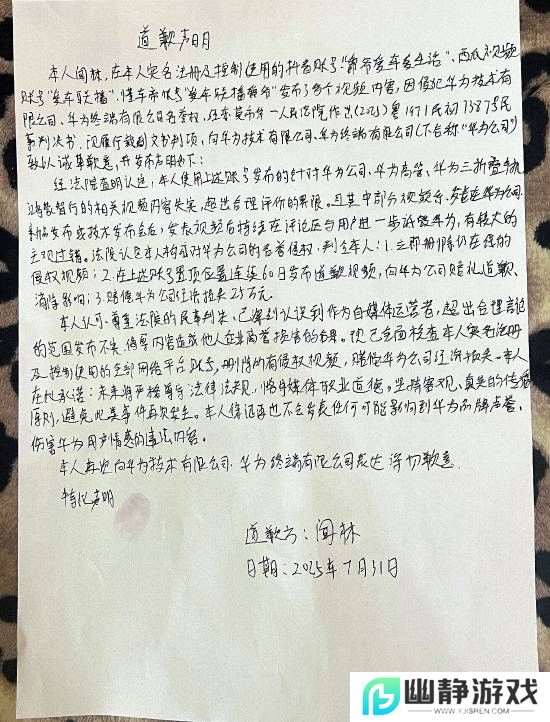 道歉声明
本人闻林，在本人实名注册及控制使用的抖音账号“常爷爱车爱生活”、西瓜视频
账号“爱车联播”、懂车帝账号“爱车联播”发布了多个视频内容，因侵犯华为技术有
限公司、华为终端有限公司名誉权，经东莞市第一人民法院作出(2025)粤1971民初73875号
民事判决书。现履行裁判文书判项，向华为技术有限公司、华为终端有限公司(下合称“华为公司”)
致以诚挚歉意，并发布声明如下：
经法院查明认定，本人使用上述账号发布的针对华为公司、华为高管、华为三折叠手机
暂行的相关视频内容失实，超出合理评价的界限。且其中部分视频系华为公司
新品发布或技术发布会后，发表视频后持续在评论区与用户进一步诋毁华为，有较大的
主观过错。法院认定本人构成对华为公司的名誉侵权，判令本人：1.立即删除仍在线的
侵权视频；2.在上述账号置顶位置连续60日发布道歉视频，向华为公司赔礼道歉、
消除影响；3.赔偿华为公司经济损失25万元。
本人认可、尊重法院的民事判决，已深刻认识到作为自媒体运营者，超出合理言论
的范围发布不实、侮辱内容造成他人企业商誉损害的后果。现已全面核查本人实名注册
及控制使用的全部网络平台账号，删除所有侵权视频，赔偿华为公司经济损失。本人
在此承诺：未来将严格遵守法律法规，恪守媒体职业道德。坚持客观、真实的传播
原则，避免此类事件再次发生。本人保证再也不会发表任何可能影响到华为品牌声誉、
伤害华为用户情感的违法内容。
本人再次向华为技术有限公司、华为终端有限公司表达深切歉意。
特此声明
道歉人：闻林
日期：2025年7月31日
幽静游戏
WWW.YJISREN.COM